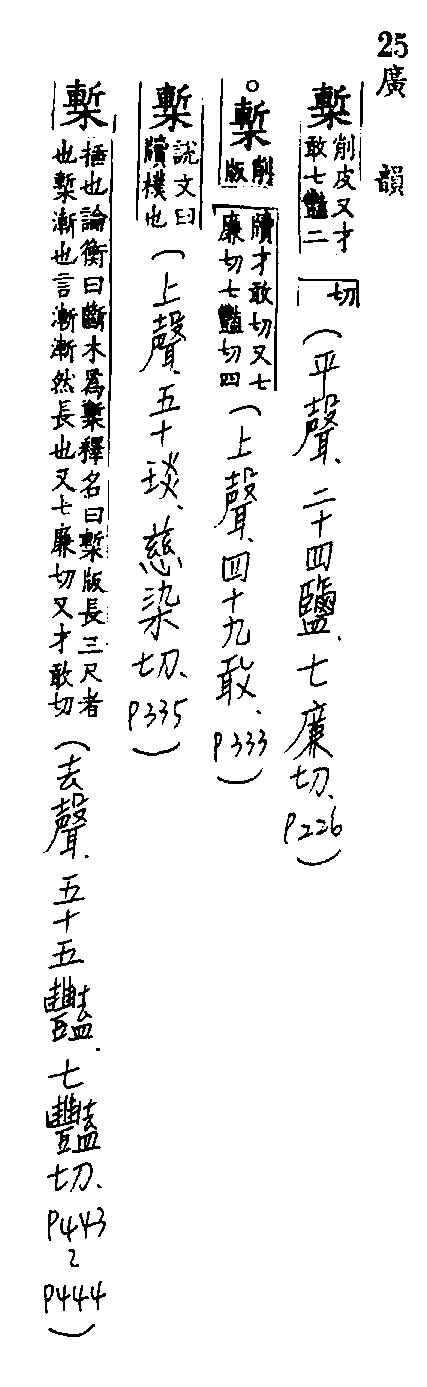 25
廣韻
槧 削皮又才敢七豔二切（平聲、二十四鹽、七廉切、P226）
。槧 削版牘才敢切又七廉切七豔切四（上聲、四十九敢、P333）
槧 說文曰牘樸也（上聲、五十琰、慈染切、P335）
槧 插也論衡曰斷木爲槧釋名曰槧版長三尺者也槧漸也言漸漸然長也又七廉切又才敢切（去聲、五十五豔、七豔切、P443~P444）